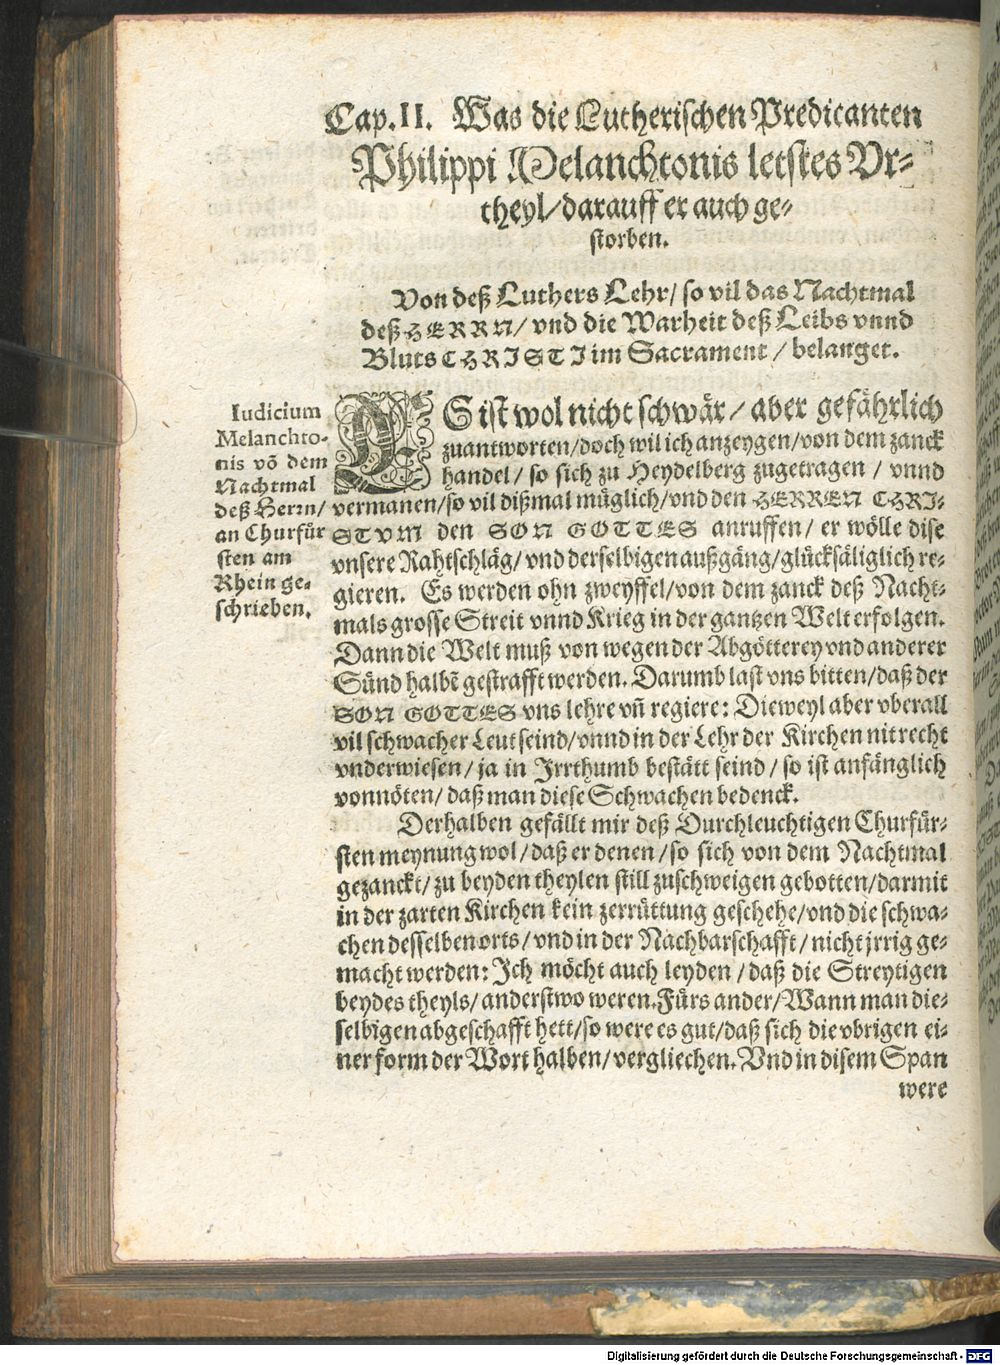 Cap. II. Was die Lutherischen Predicanten
Philippi Melanchtonis letstes Vr-
theyl/ darauff er auch ge-
storben.
Von deß Luthers Lehr/ so vil das Nachtmal
deß HERRN/ vnd die Warheit deß Leibs vnnd
Bluts CHRISTI im Sacrament/ belanget.
Iudicium
Melanchto-
nis võ dem
Nachtmal
deß Herrn/
an Churfür
sten am
Rhein ge-
schrieben.
ES ist wol nicht schwär/ aber gefährlich
zuantworten/ doch wil ich anzeygen/ von dem zanck
handel/ so sich zu Heydelberg zugetragen/ vnnd
vermanen/ so vil dißmal müglich/ vnd den HERREN CHRI-
STVM den SON GOTTES anruffen/ er wölle dise
vnsere Rahtschläg/ vnd derselbigen außgäng/ glücksäliglich re-
gieren. Es werden ohn zweyffel/ von dem zanck deß Nacht-
mals grosse Streit vnnd Krieg in der gantzen Welt erfolgen.
Dann die Welt muß von wegen der Abgötterey vnd anderer
Sünd halbẽ gestrafft werden. Darumb last vns bitten/ daß der
SON GOTTES vns lehre vñ regiere: Dieweyl aber vberall
vil schwacher Leut seind/ vnnd in der Lehr der Kirchen nit recht
vnderwiesen/ ja in Irrthumb bestätt seind/ so ist anfänglich
vonnöten/ daß man diese Schwachen bedenck.
Derhalben gefällt mir deß Durchleuchtigen Churfür-
sten meynung wol/ daß er denen/ so sich von dem Nachtmal
gezanckt/ zu beyden theylen still zuschweigen gebotten/ darmit
in der zarten Kirchen kein zerrüttung geschehe/ vnd die schwa-
chen desselben orts/ vnd in der Nachbarschafft/ nicht jrrig ge-
macht werden: Ich möcht auch leyden/ daß die Streytigen
beydes theyls/ anderstwo weren. Fürs ander/ Wann man die-
selbigen abgeschafft hett/ so were es gut/ daß sich die vbrigen ei-
ner form der Wort halben/ vergliechen. Vnd in disem Span
were
Digitalisierung gefördert durch die Deutsche Forschungsgemeinschaft - DFG